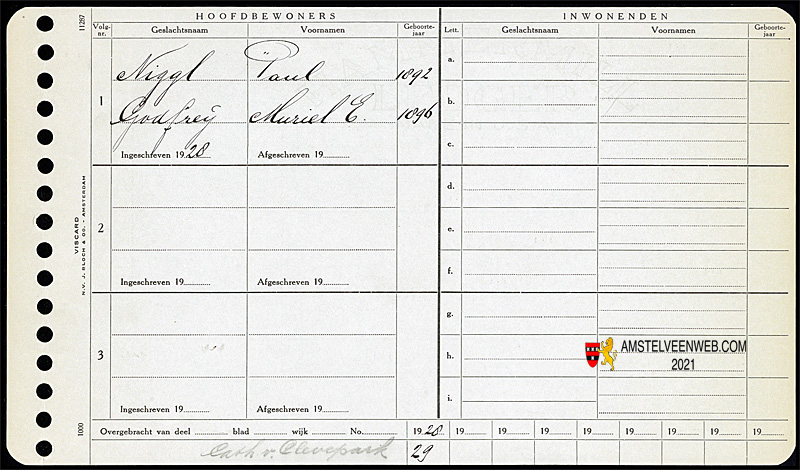 HOOFDBEWONERS INWONENDEN
11287
Volg-nr. Geslachtsnaam Voornamen Geboorte-jaar Lett. Geslachtsnaam Voornamen Geboorte-jaar
Niggl Paul 1892
1
Godfrey Muriel E. 1896
Ingeschreven 1928 Afgeschreven 19
a.
b.
c.
2
Ingeschreven 19 Afgeschreven 19
d.
e.
f.
3
Ingeschreven 19 Afgeschreven 19
g.
h.
i.
VISCARD
N.V. J. BLOCH & CO. - AMSTERDAM
1000
AMSTELVEENWEB.COM
2021
Overgebracht van deel blad wijk No. 1928 19 19 19 19 19 19 19 19
Cath v. Clevepark 29